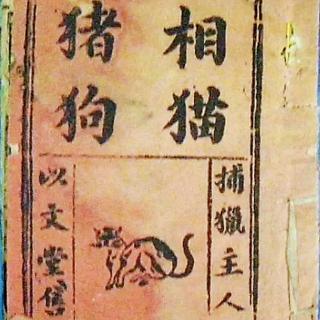 相猫
猪狗
捕獵主人
以文堂售